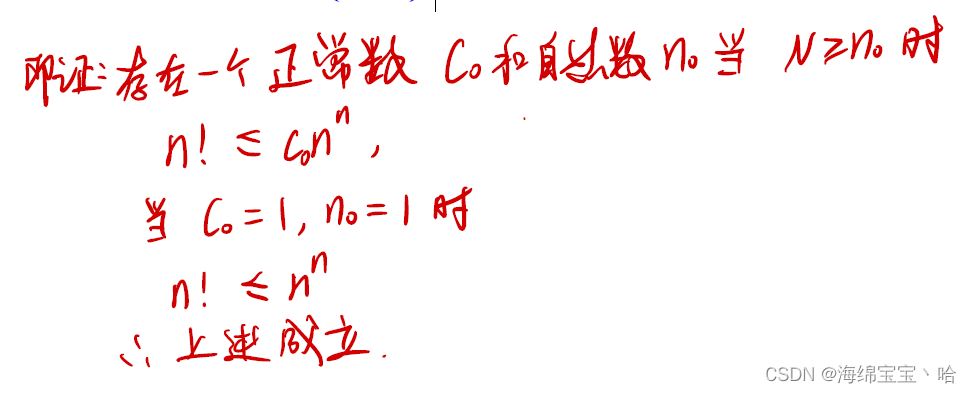 即证:存在一个正常数 C₀和自然数 n₀ 当 N≥n₀ 时
n! ≤ c₀nⁿ,
当 C₀=1, n₀=1 时
n! ≤ nⁿ
∴ 上述成立.
CSDN @海绵宝宝丶哈